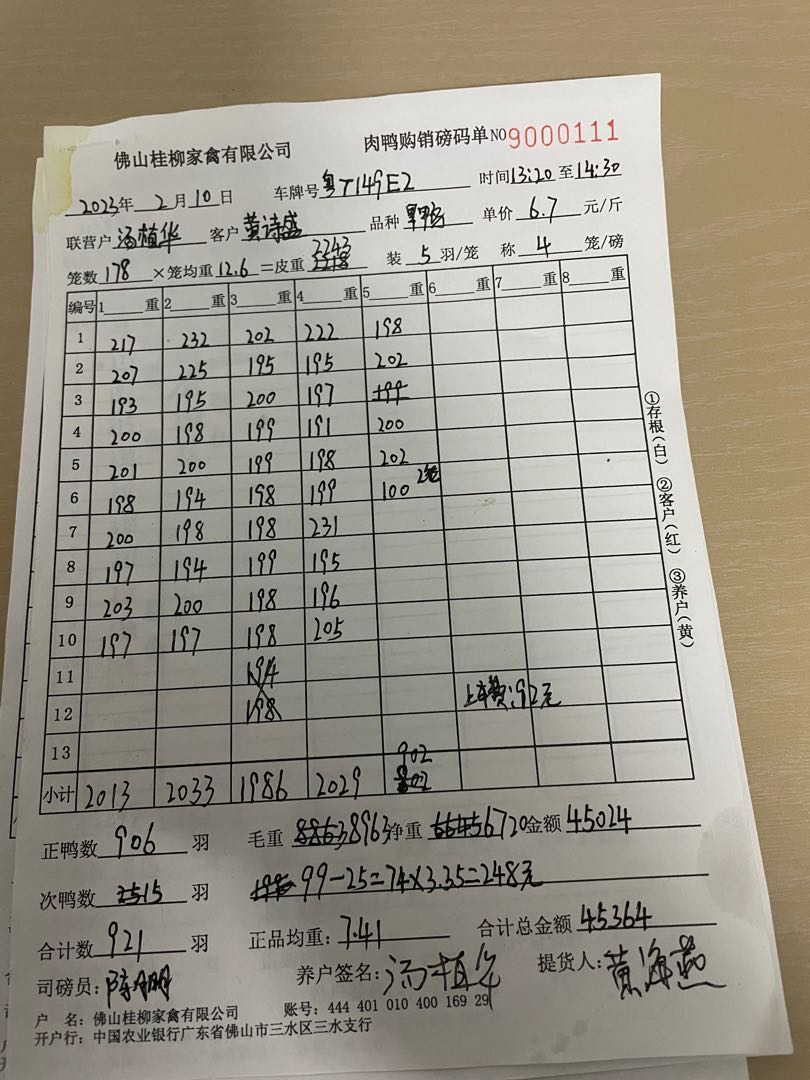 佛山桂柳家禽有限公司 肉鸭购销磅码单 NO 9000111
2023年 2月10日 车牌号 粤T149E2 时间13:20至14:30
联营户 汤植华 客户 黄诗盛 品种 单价 6.7 元/斤
2243
笼数 178 ×笼均重 12.6 =皮重 2218 装 5 羽/笼 称 4 笼/磅
编号 1 重 2 重 3 重 4 重 5 重 6 重 7 重 8 重
1 217 232 202 222 198
2 207 225 195 195 202
3 193 195 200 197 199
4 200 198 199 191 200
5 201 200 199 198 202
6 198 194 198 199 100 2笼
7 200 198 198 231
8 197 194 199 195
9 203 200 198 196
10 197 197 198 205
11 194
12 198 上车费:92元
13 902
小计 2013 2033 1986 2029 802
正鸭数 906 羽 毛重 8863 8963 净重 6645 6720 金额 45024
次鸭数 25 15 羽 99-25=74×3.35=248元
合计数 921 羽 正品均重: 7.41 合计总金额 45364
司磅员: 养户签名: 汤植华 提货人: 黄海燕
户 名: 佛山桂柳家禽有限公司 账号: 444 401 010 400 169 29
开户行: 中国农业银行广东省佛山市三水区三水支行
①存根(白) ②客户(红) ③养户(黄)